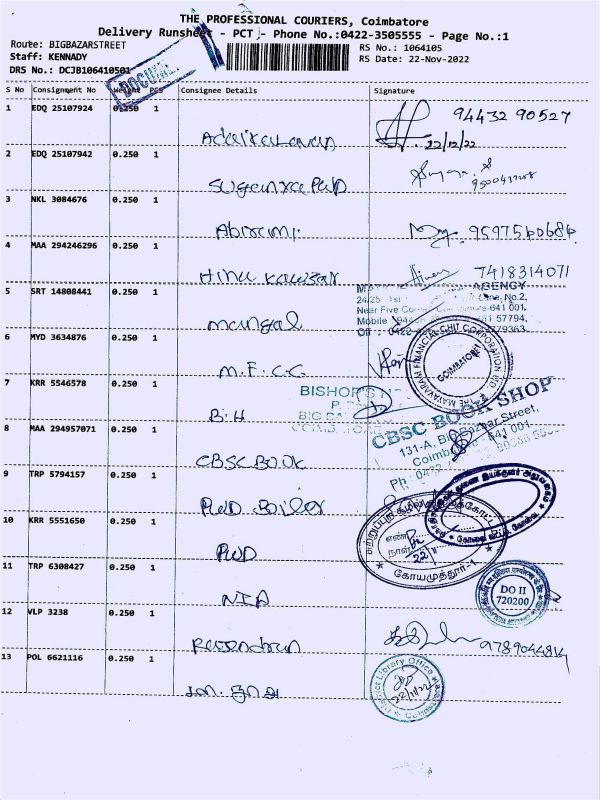 THE PROFESSIONAL COURIERS, Coimbatore
Delivery Runsheet - PCT - Phone No.:0422-3505555 - Page No.:1
Route: BIGBAZARSTREET
RS No.: 1064105
Staff: KENNADY
RS Date: 22-Nov-2022
DRS No.: DCJB106410501
DOCUMENT
S No Consignment No Weight PCS Consignee Details Signature
1 EDQ 25107924 0.250 1 94432 90527
22/12/22
2 EDQ 25107942 0.250 1
3 NKL 3084676 0.250 1 Abirami 9597560686
4 MAA 294246296 0.250 1 Hinu Kawsar 7418314071
AGENCY
Lane, No.2,
Near Five 641 001.
Mobile 57794,
5 SRT 14808441 0.250 1 mangal
THE MAYAVARAM FINANCIAL CHIT CORPORATION LTD.
COIMBATORE
6 MYD 3634876 0.250 1 M.F.C.C
BISHOP'S
7 KRR 5546578 0.250 1 B.H
CBSC BOOK SHOP
131-A, Big Bazaar Street,
Coimbatore 641 001
Ph : 0472
8 MAA 294957071 0.250 1 CBSC BOOK
9 TRP 5794157 0.250 1 PWD Boiler
10 KRR 5551650 0.250 1 PWD
எண்
நாள்
22/11
கோயமுத்தூர்-1
11 TRP 6308427 0.250 1 NIA
DO II
720200
12 VLP 3238 0.250 1 9789044814
13 POL 6621116 0.250 1
District Library Office
22/11/22